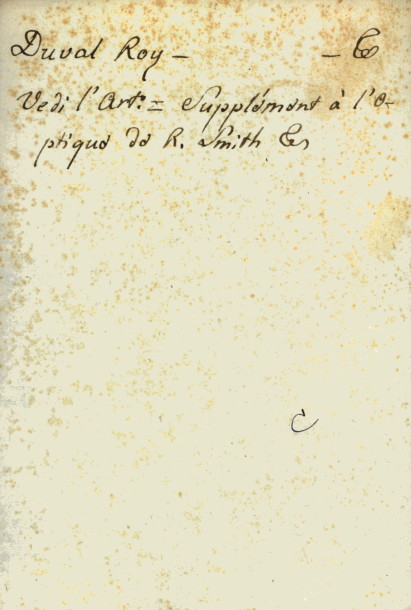 Duval Roy — — &c
Vedi l'Art.° = Supplément à l'O-
ptique de R. Smith &c
C